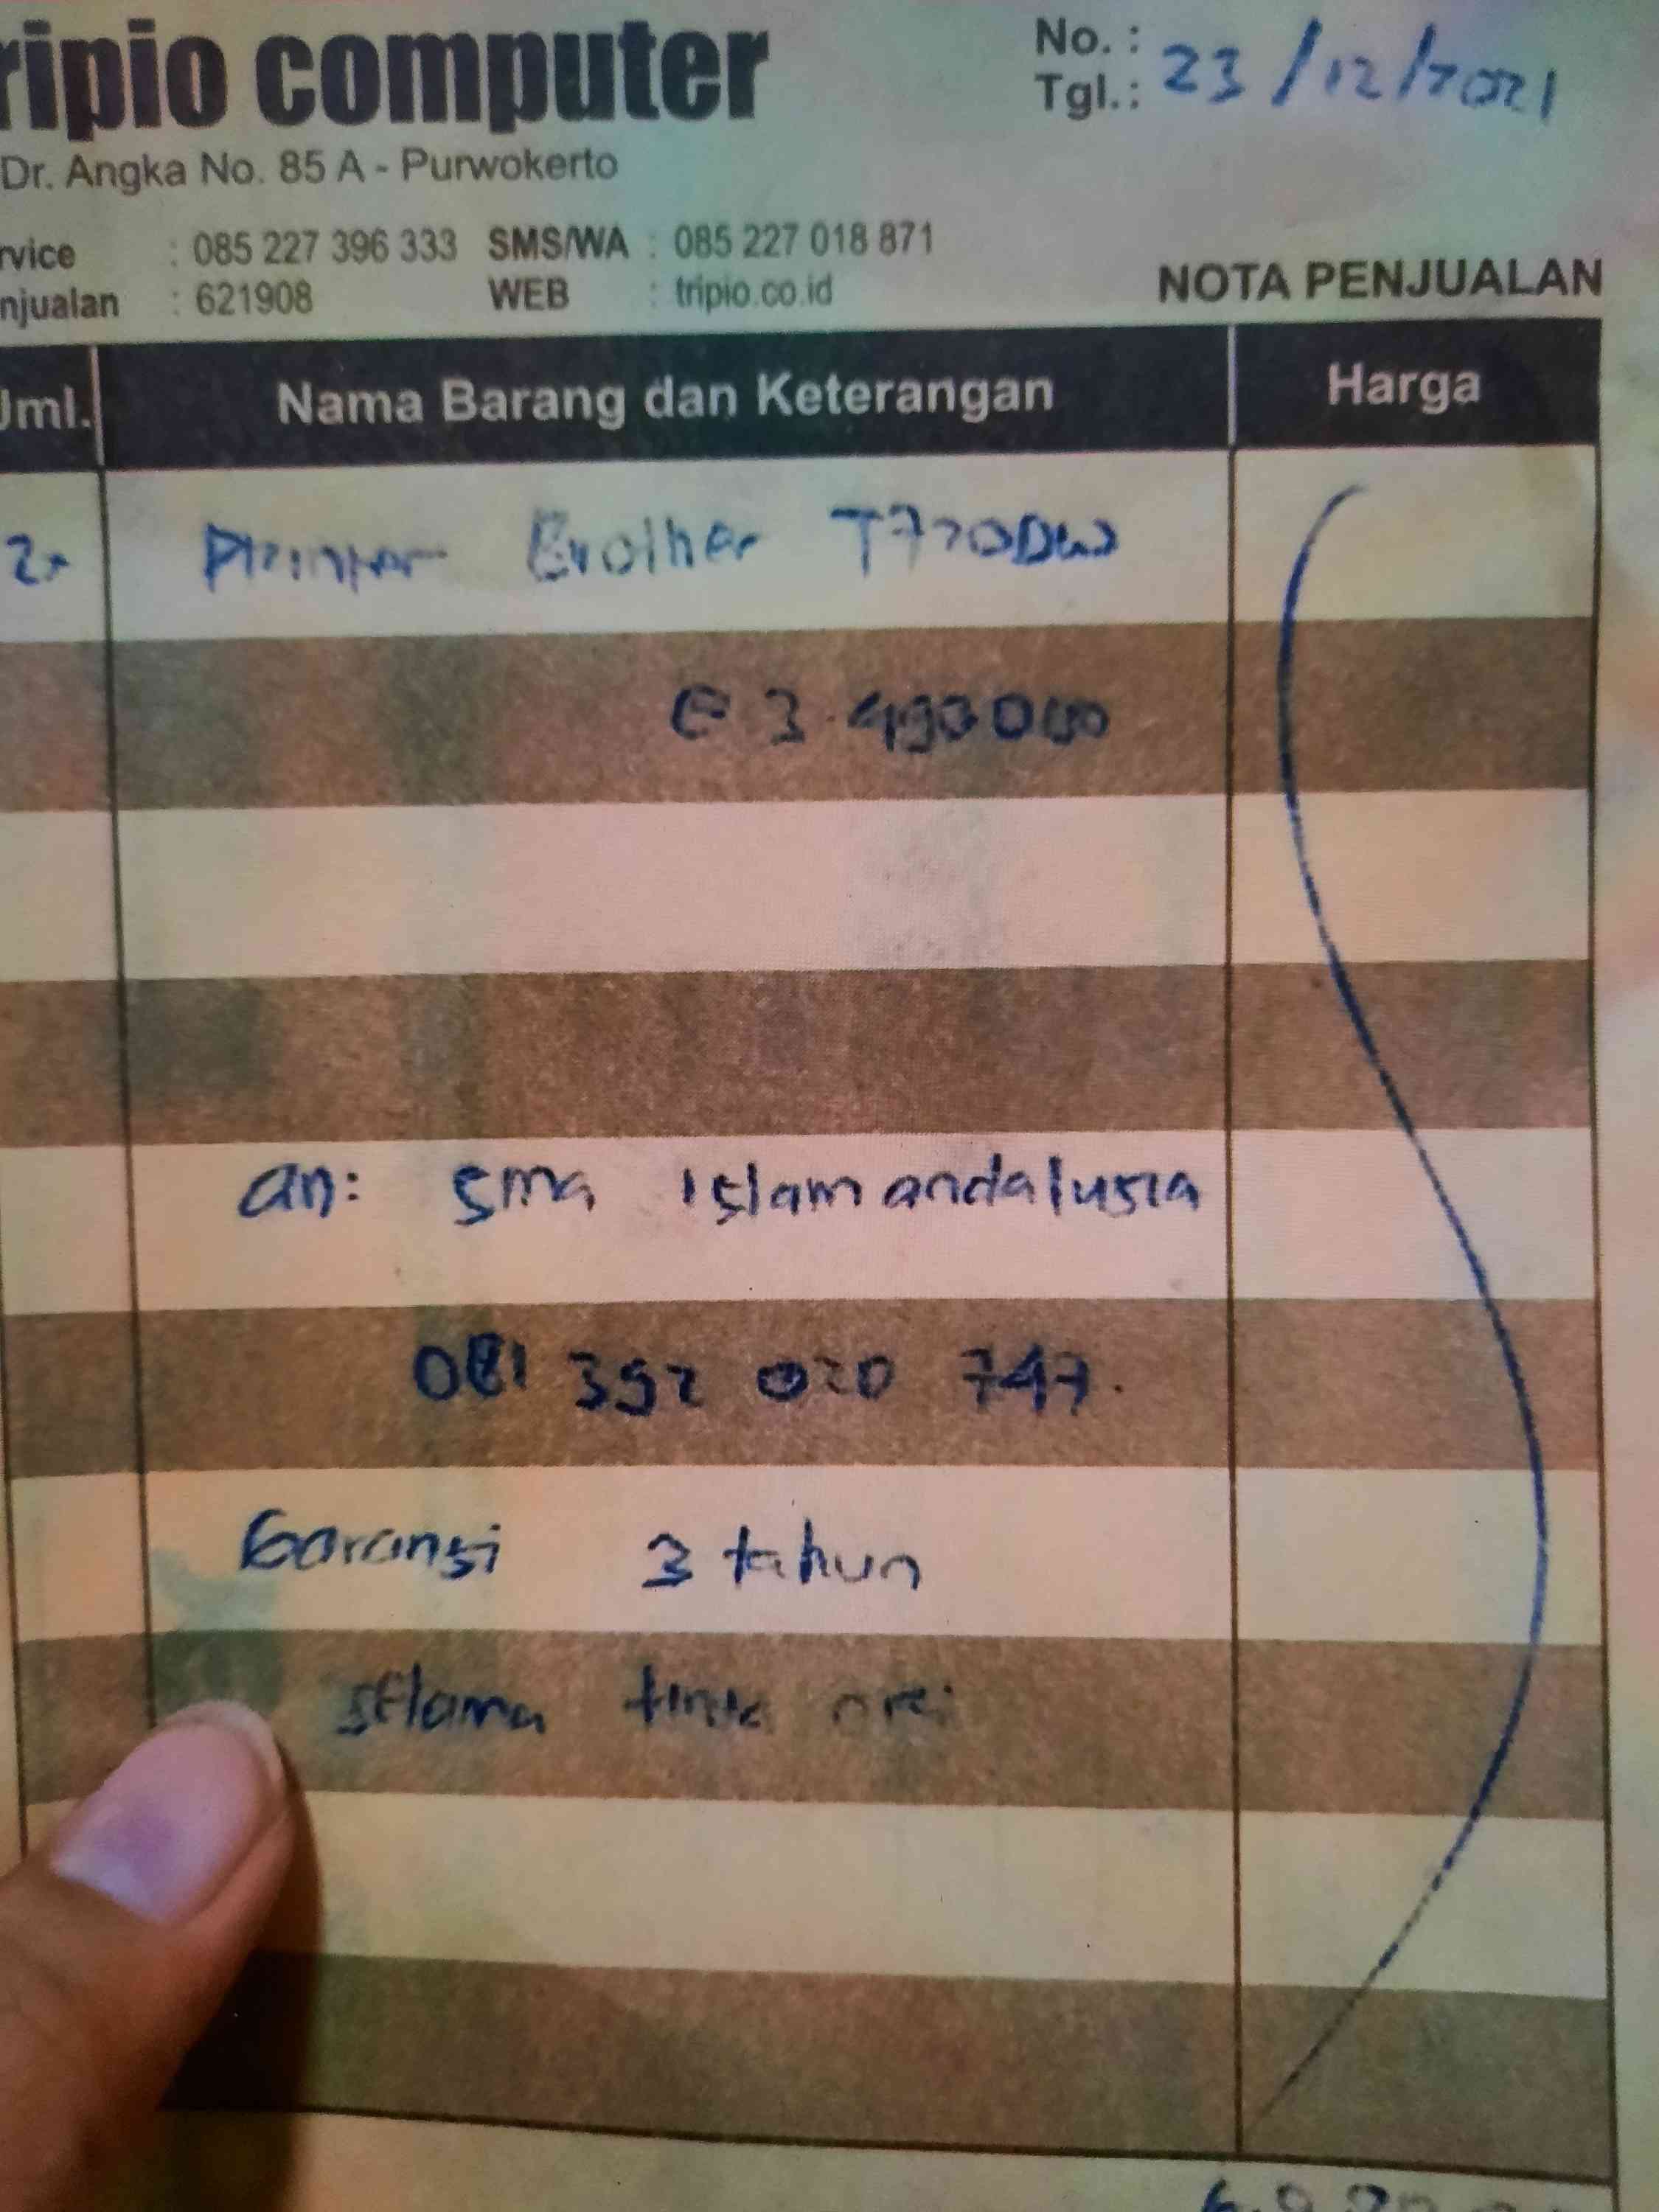 ripio computer
No. :
Tgl.: 23/12/2021
Dr. Angka No. 85 A - Purwokerto
rvice : 085 227 396 333 SMS/WA : 085 227 018 871
njualan : 621908 WEB : tripio.co.id
NOTA PENJUALAN
Jml. Nama Barang dan Keterangan Harga
Printer Brother T720DW
@ 3.490000
an: sma islam andalusia
081 392 020 747.
Garansi 3 tahun
selama tinta ori